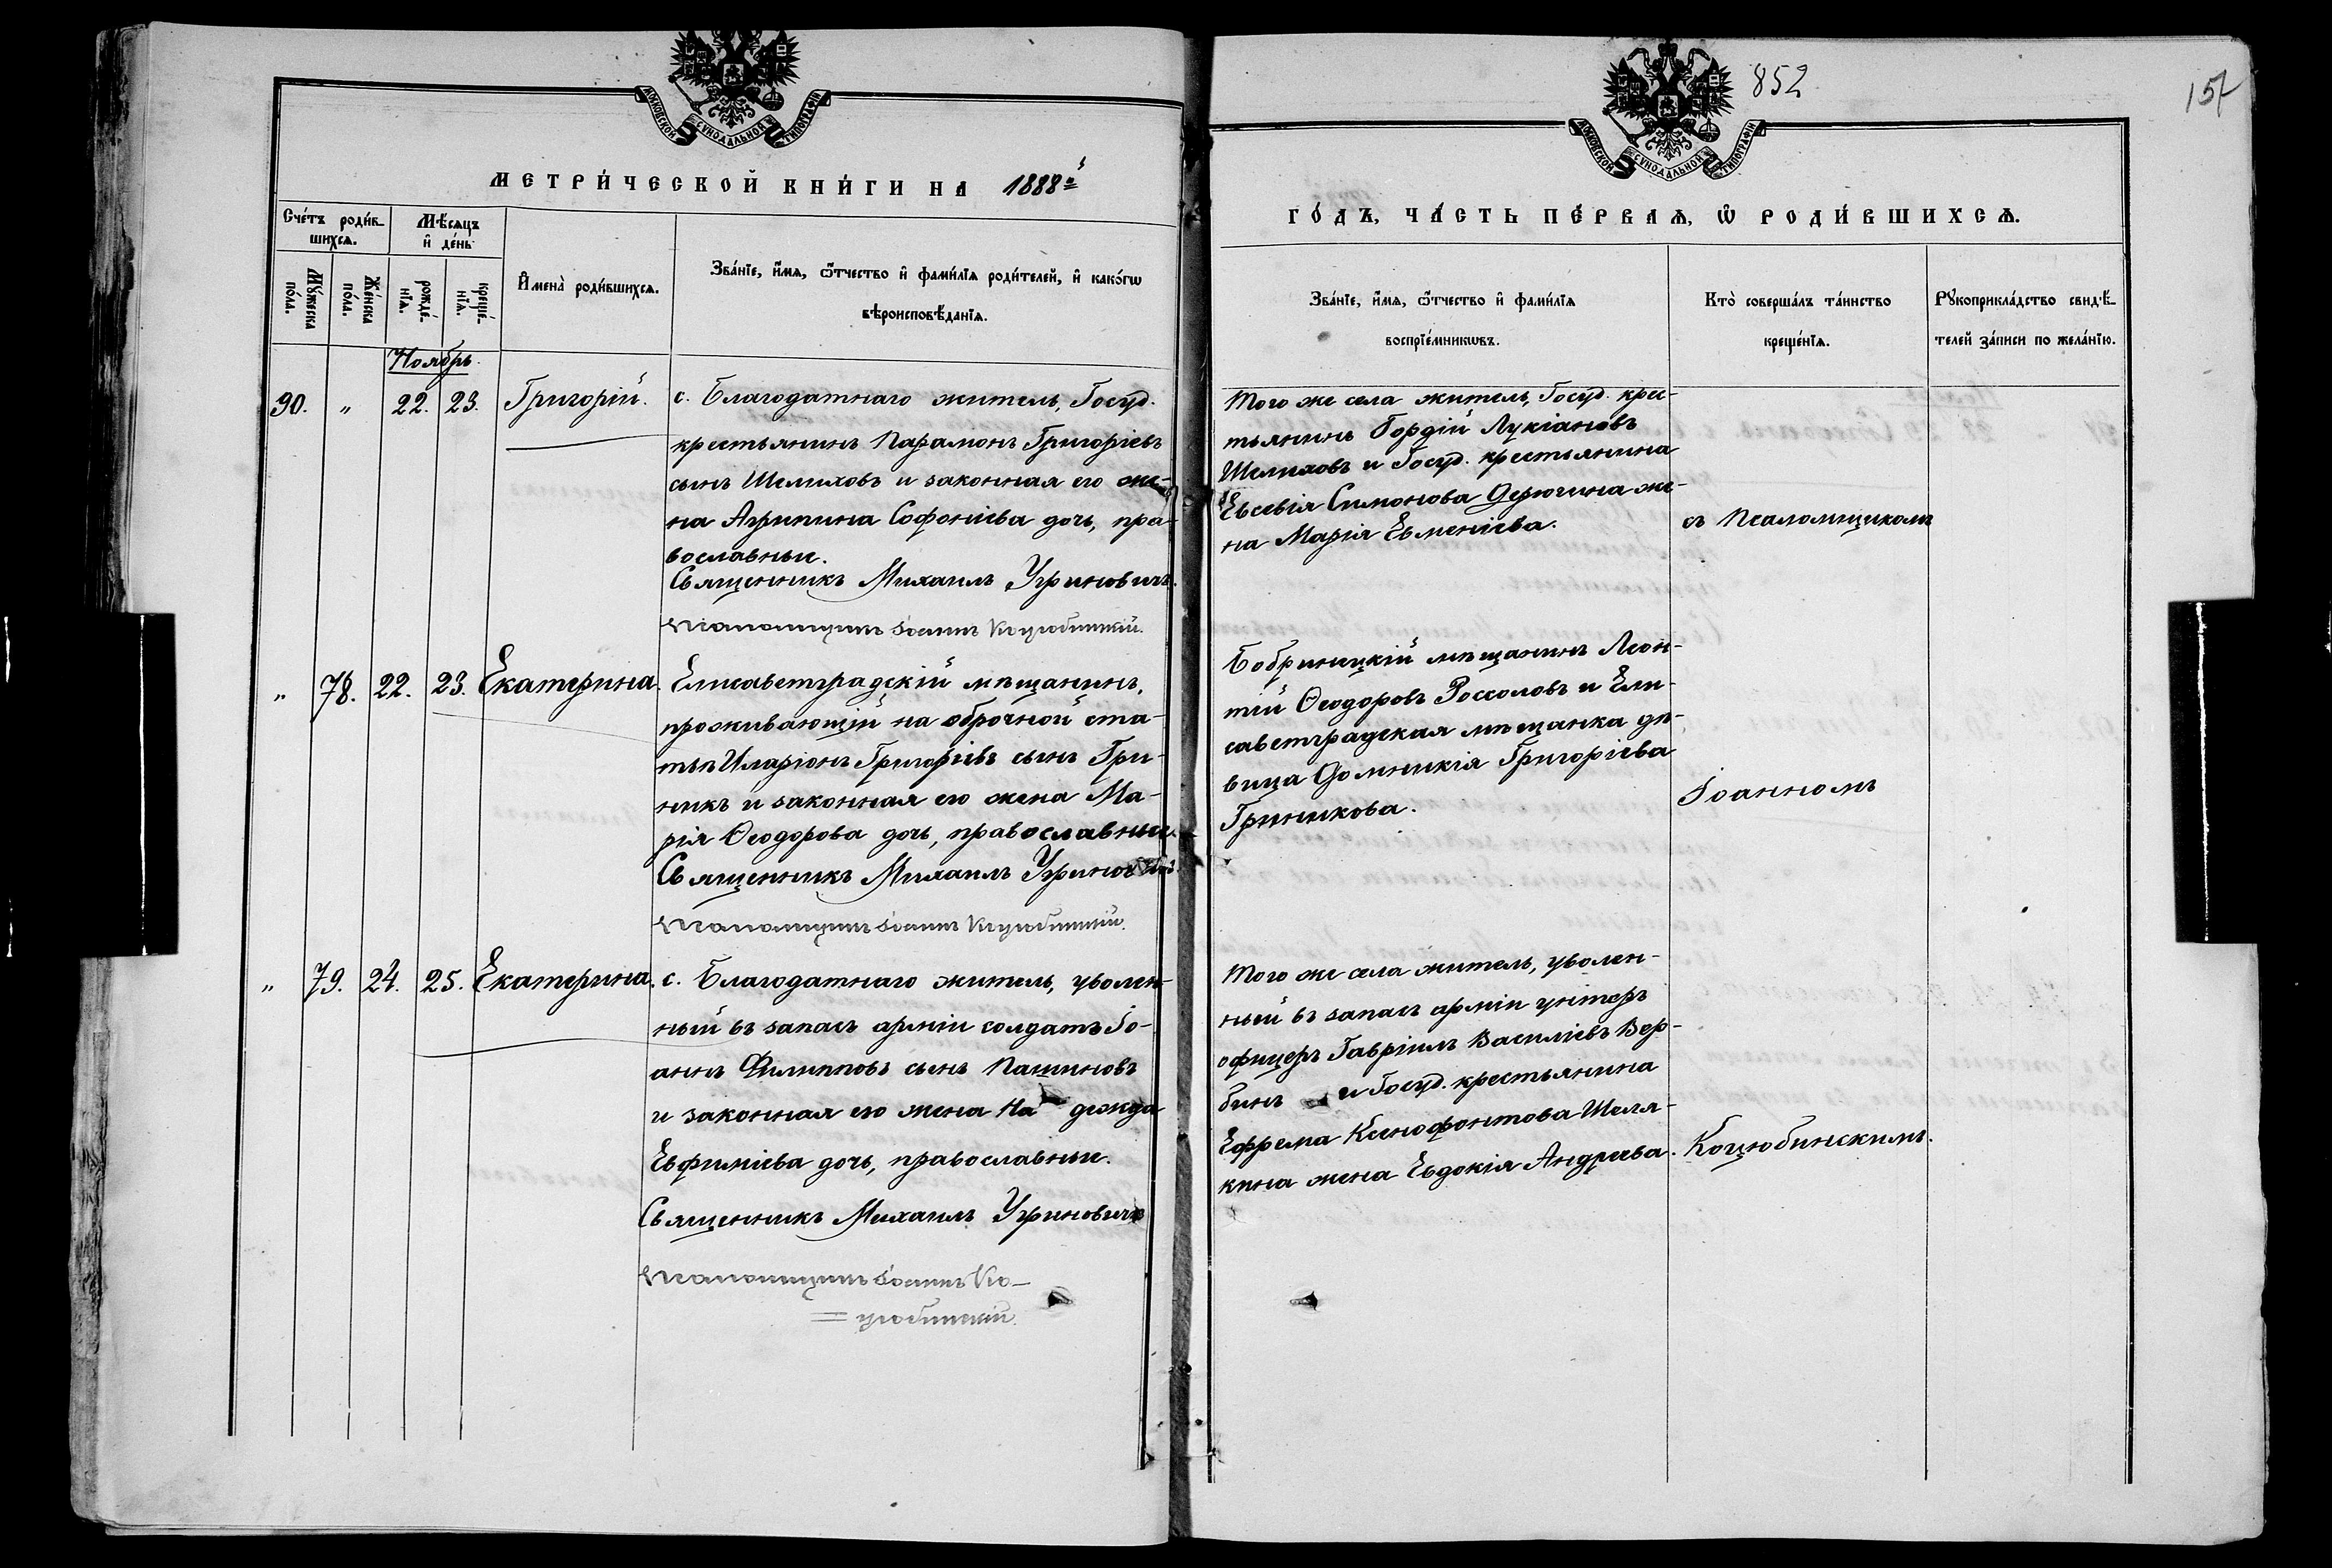 МОСКОВСКОЙ СУНОДАЛЬНОЙ ТИПОГРАФІИ
МЕТРИ́ЧЕСКОЙ КНИ́ГИ НА 1888й
Сче́тъ роди́в-
шихсѧ.
Мѣ́сѧцъ
и҆ де́нь
Мꙋ́жеска
по́ла.
Же́нска
по́ла.
рожде́-
нїѧ.
креще́-
нїѧ.
И҆мена̀ роди́вшихсѧ.
Зва́нїе, и҆́мѧ, ѻ҆́тчество и҆ фами́лїѧ роди́телей, и҆ како́гѡ
вѣроисповѣ́данїѧ.
Ноябрь.
90. „ 22. 23. Григорій. с. Благодатнаго житель, Госуд.
крестьянинъ Парамонъ Григоріевъ
сынъ Шелиховъ и законная его же-
на Агрипина Софоніева дочь, пра-
вославные.
Священникъ Михаилъ Угриновичъ.
Псаломщикъ Іоаннъ Коцюбинскій.
„ 78. 22. 23. Екатерина. Елисаветградскій мѣщанинъ,
проживающій на оброчной ста-
тьѣ Иларіонъ Григоріевъ сынъ Гри-
никъ и законная его жена Ма-
рія Ѳеодорова дочь, православные.
Священникъ Михаилъ Угриновичъ.
Псаломщикъ Іоаннъ Коцюбинскій.
„ 79. 24. 25. Екатерина. с. Благодатнаго житель, уволен-
ный въ запасъ арміи солдатъ Іо-
аннъ Филипповъ сынъ Пашиновъ
и законная его жена На дежда
Евфиміева дочь, православные.
Священникъ Михаилъ Угриновичъ
Псаломщикъ Іоаннъ Ко-
= цюбинскій.
852
157
МОСКОВСКОЙ СУНОДАЛЬНОЙ ТИПОГРАФІИ
ГО́ДЪ, ЧА́СТЬ ПЕ́РВАѦ, Ѡ҆ РОДИ́ВШИХСѦ.
Зва́нїе, и҆́мѧ, ѻ҆́тчество и҆ фами́лїѧ
воспрїе́мникѡвъ.
Кто̀ соверша́лъ та́инство
креще́нїѧ.
Рꙋкоприкла́дство свидѣ́-
телей за́писи по жела́нїю.
Того же села житель, Госуд. крес-
тьянинъ Гордій Лукіановъ
Шелиховъ и Госуд. крестьянина
Евсевія Симонова Дерюгина же-
на Марія Евменіева.
съ Псаломщикомъ
Бобринецкій мѣщанинъ Леон-
тій Ѳеодоровъ Россоловъ и Ели-
саветградская мѣщанка дѣ-
вица Домникія Григоріева
Гриникова.
Іоанномъ
Того же села житель, уволен-
ный въ запасъ арміи унтеръ
офицеръ Гавріилъ Василіевъ Вер-
бинъ и Госуд. крестьянина
Ефрема Ксенофонтова Шеля-
кина жена Евдокія Андреева.
Коцюбинскимъ.